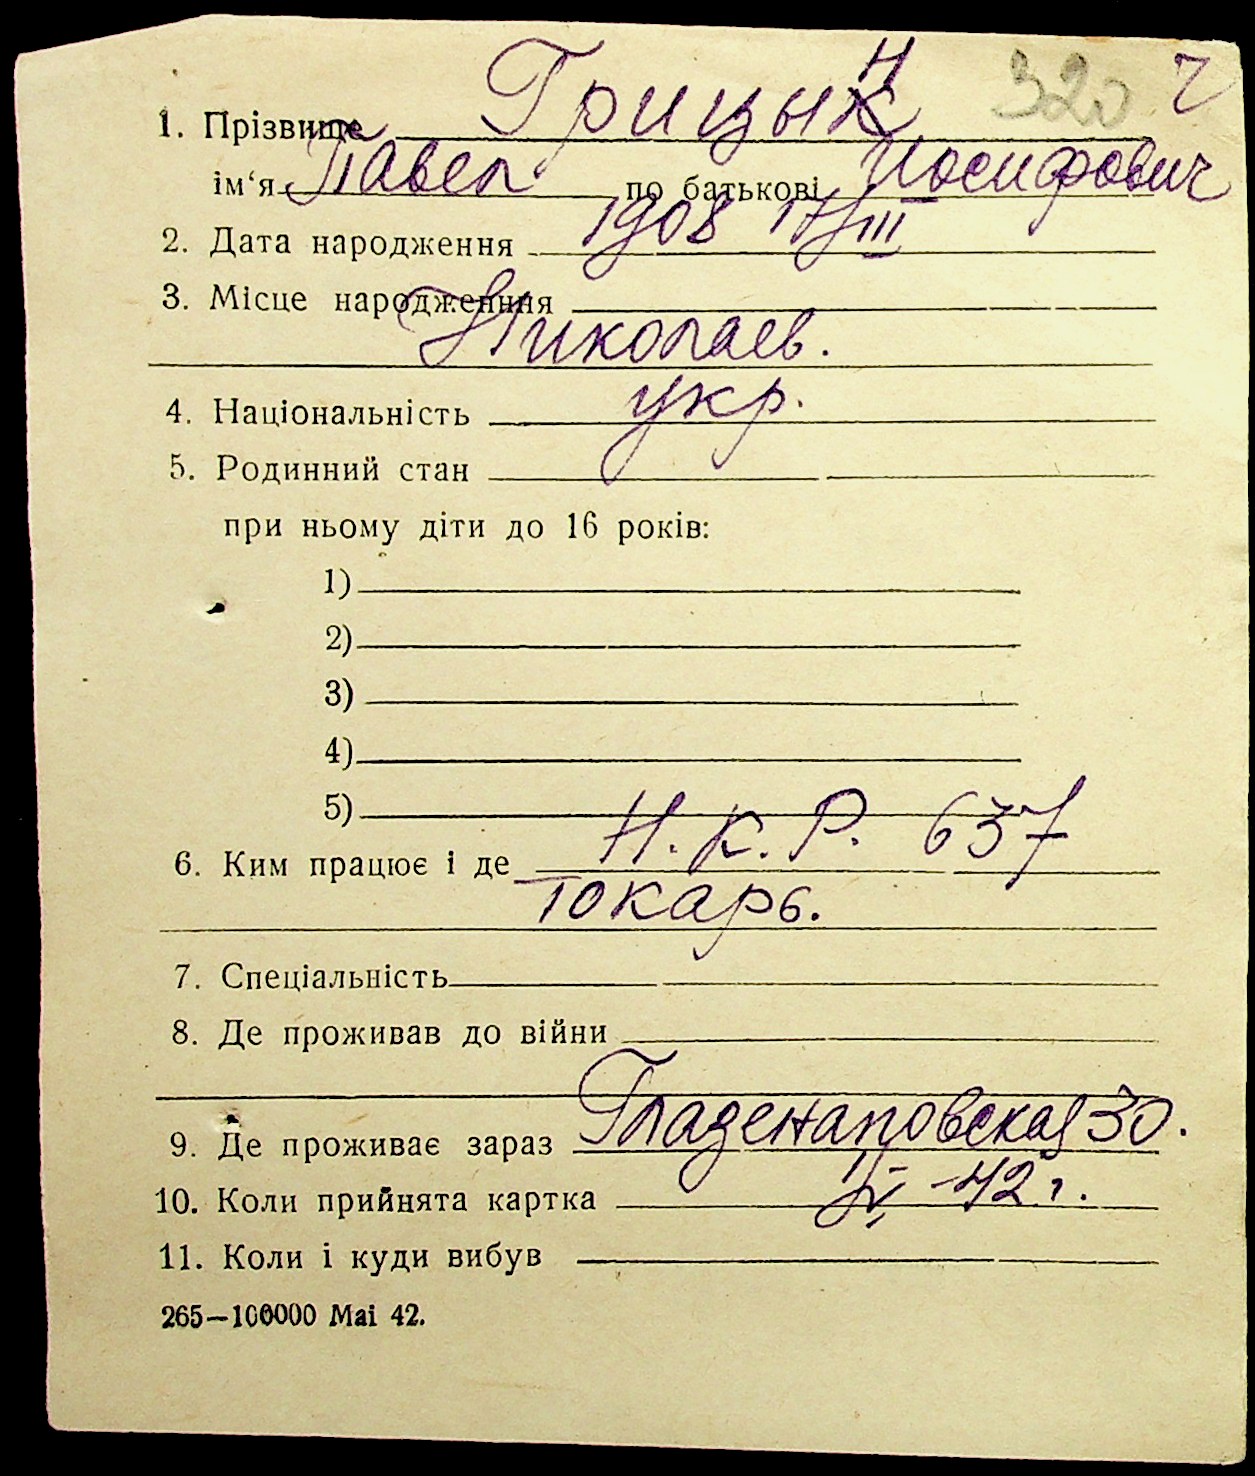 320 ч
1. Прізвище Грицын
ім‘я Павел по батькові Иосифович
2. Дата народження 1908 17/III
3. Місце народженння
Николаев.
4. Національність укр.
5. Родинний стан
при ньому діти до 16 років:
1)
2)
3)
4)
5)
6. Ким працює і де Н. К. Р. 637
токарь.
7. Спеціальність
8. Де проживав до війни
9. Де проживає зараз 30.
10. Коли прийнята картка IV -42 г.
11. Коли і куди вибув
265—100000 Mai 42.